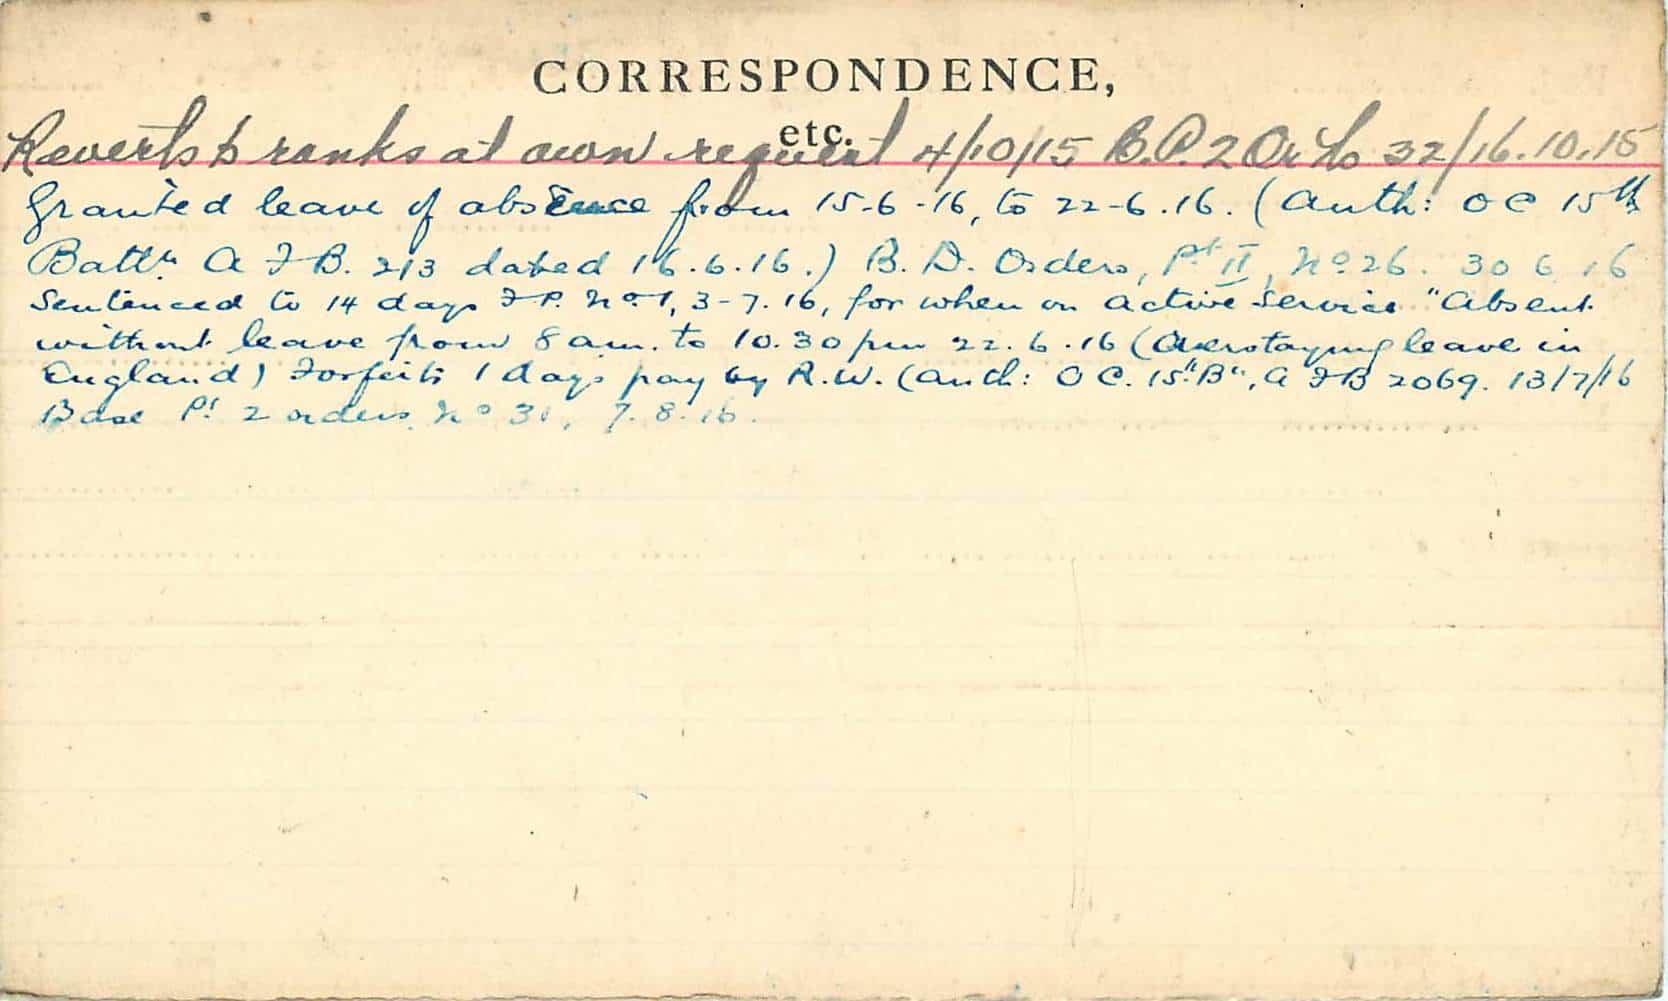 CORRESPONDENCE,
etc.
Reverts to ranks at own request 4/10/15 B.P. 2 Or No 32/16.10.15
Granted leave of absence from 15-6-16, to 22-6.16. (Auth: OC 15th
Battn A F B. 213 dated 16.6.16.) B. D. Orders, Pt II, No 26. 30 6 16
Sentenced to 14 days F.P. No 1, 3-7.16, for when on active service "Absent
without leave from 8 am. to 10.30 pm 22.6.16 (Overstaying leave in
England) Forfeits 1 days pay by R.W. (Auth: O C. 15"B", A F B 2069. 13/7/16
Base Pt 2 orders No 31, 7.8.16.